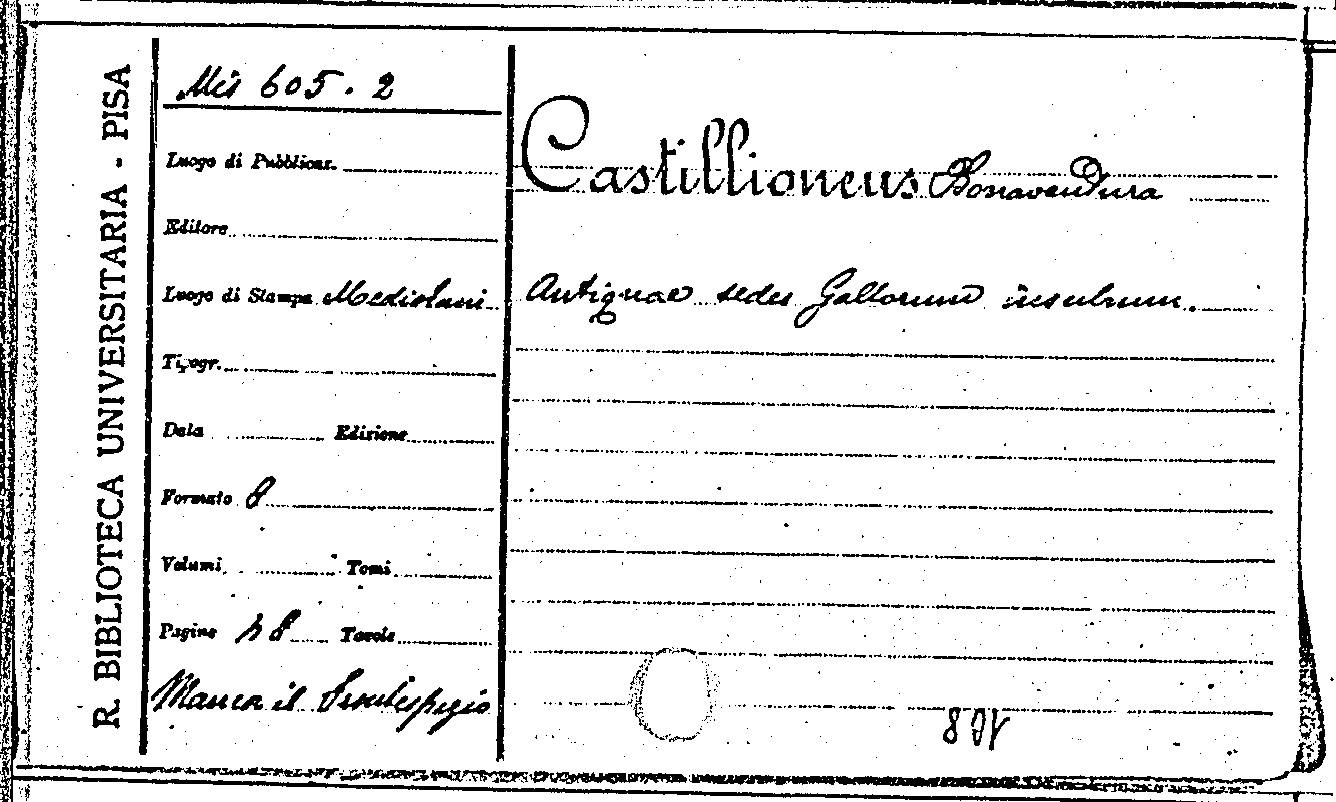 R. BIBLIOTECA UNIVERSITARIA - PISA
Mis 605. 2
Luogo di Pubblicaz.
Editore
Luogo di Stampa Mediolani
Tipogr.
Data Edizione
Formato 8
Volumi Tomi
Pagine 48 Tavole
Manca il frontespizio
Castillioneus Bonaventura
Antiquae sedes Gallorum insubrum.